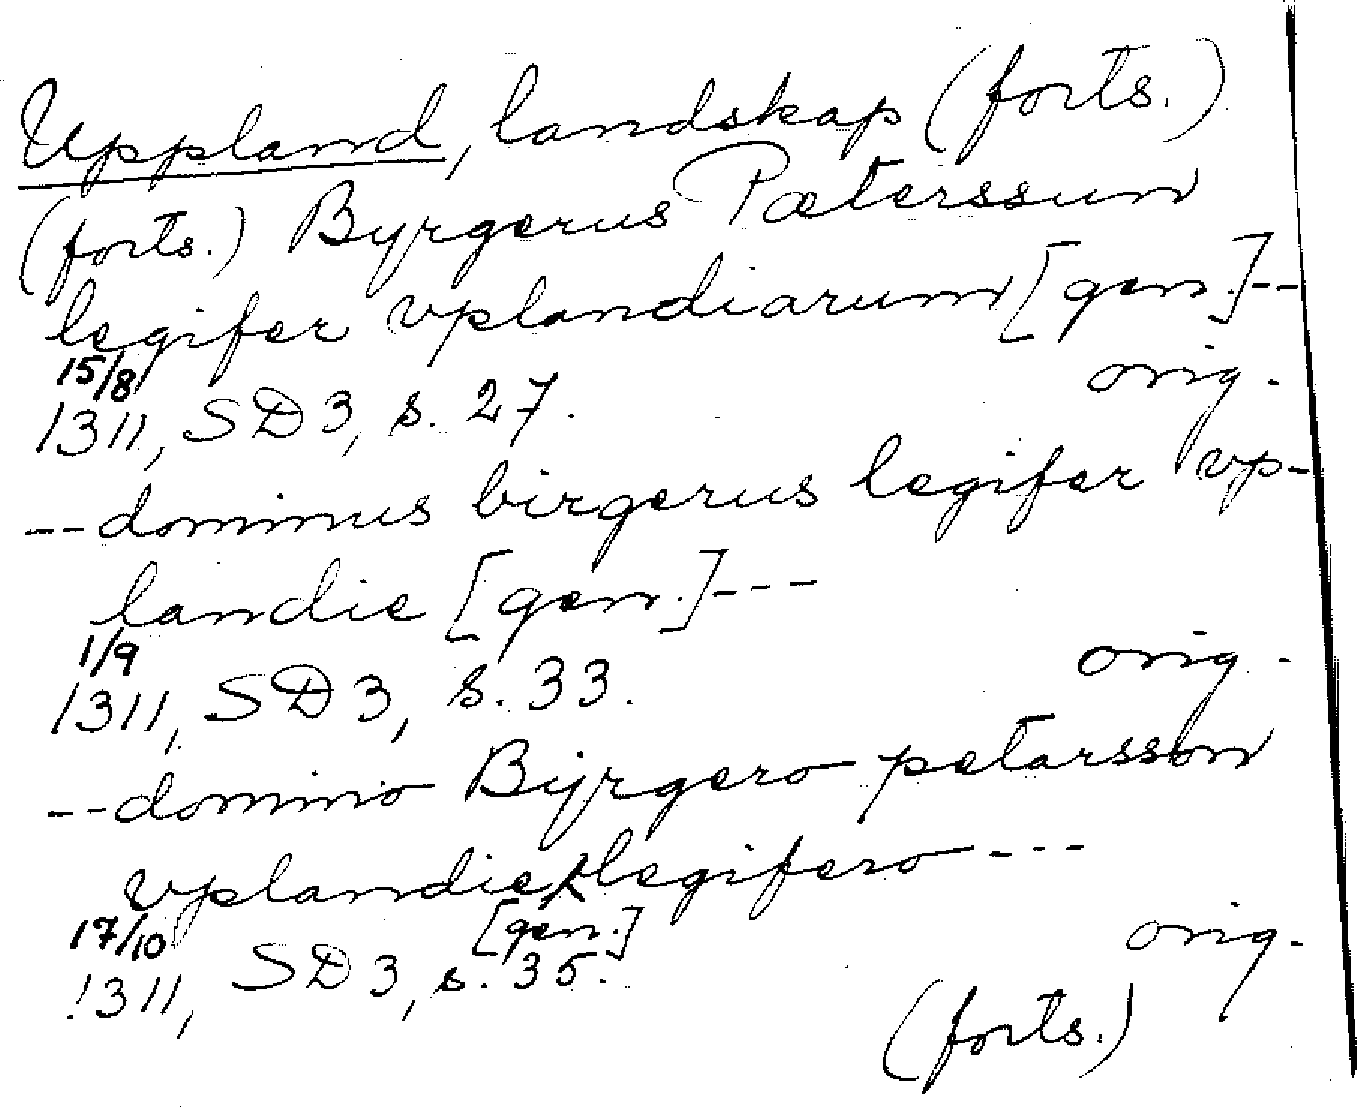 Uppland, landskap (forts.)
(forts.) Byrgerus Pæterssun
legifer vplandiarum [gen.]--
15/8
1311, SD 3, s. 27. orig.
--dominus birgerus legifer vp-
landie [gen.]---
1/9
1311, SD 3, s. 33. orig.
--domino Bijrgero petarsson
vplandie legifero---
17/10 [gen.]
1311, SD 3, s. 35. orig.
(forts.)